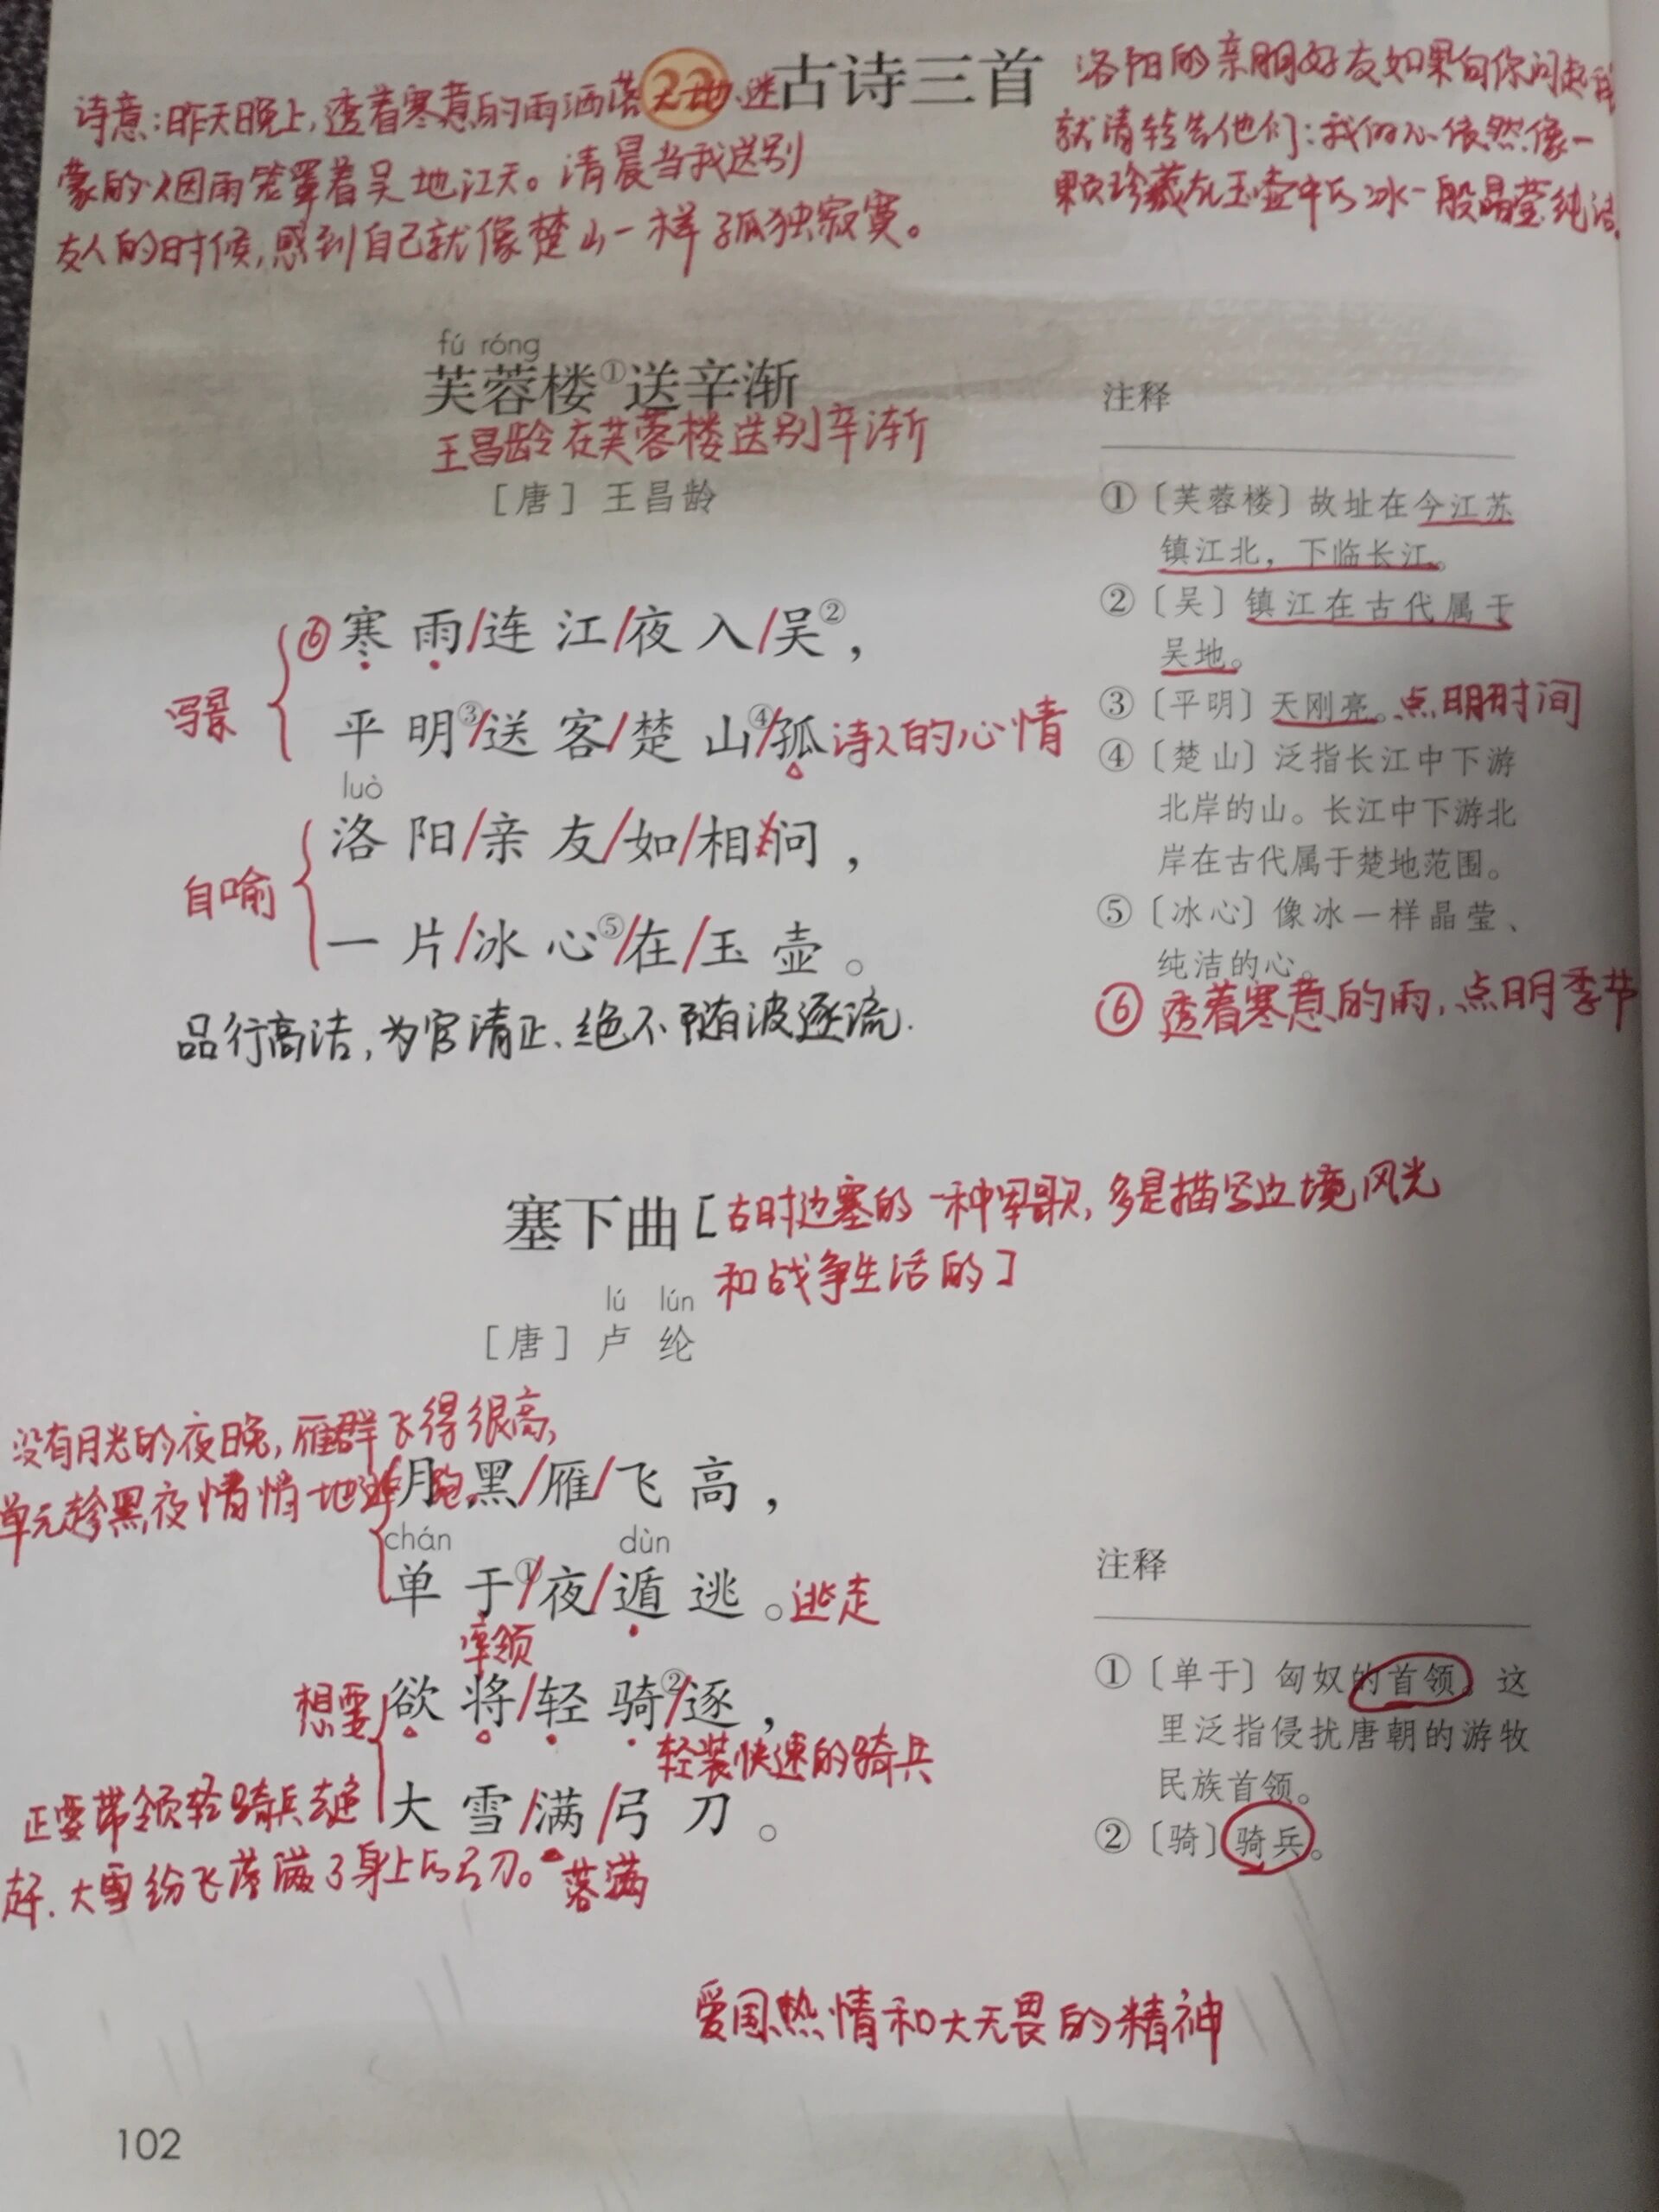 22 古诗三首
诗意：昨天晚上，透着寒意的雨洒落大地、迷
蒙的烟雨笼罩着吴地江天。清晨当我送别
友人的时候，感到自己就像楚山一样孤独寂寞。
洛阳的亲朋好友如果向你问起我
就请转告他们：我的心依然像一
颗珍藏在玉壶中的冰一般晶莹纯洁。
fú róng
芙蓉楼①送辛渐
王昌龄在芙蓉楼送别辛渐
［唐］王昌龄
写景
⑥寒雨/连江/夜入/吴②，
平明③/送客/楚山④/孤 诗人的心情
luò
自喻
洛阳/亲友/如/相问，
一片/冰心⑤/在/玉壶。
品行高洁，为官清正、绝不随波逐流.
注释
①〔芙蓉楼〕故址在今江苏
镇江北，下临长江。
②〔吴〕镇江在古代属于
吴地。
③〔平明〕天刚亮。点明时间
④〔楚山〕泛指长江中下游
北岸的山。长江中下游北
岸在古代属于楚地范围。
⑤〔冰心〕像冰一样晶莹、
纯洁的心。
⑥ 透着寒意的雨，点明季节
塞下曲［古时边塞的一种军歌，多是描写边境风光
和战争生活的］
lú lún
［唐］卢纶
没有月光的夜晚，雁群飞得很高，
单元趁黑夜悄悄地逃跑
月黑/雁/飞高，
chán dùn
单于①/夜/遁逃。逃走
率领
想要
欲将/轻骑②/逐，
轻装快速的骑兵
大雪/满/弓刀。
正要带领轻骑兵去追
赶.大雪纷飞落满了身上的弓刀。
落满
注释
①〔单于〕匈奴的首领。这
里泛指侵扰唐朝的游牧
民族首领。
②〔骑〕骑兵。
爱国热情和大无畏的精神
102